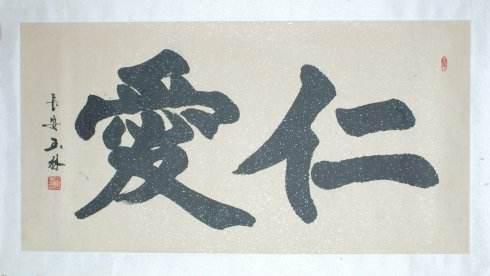 仁愛
長安玉林